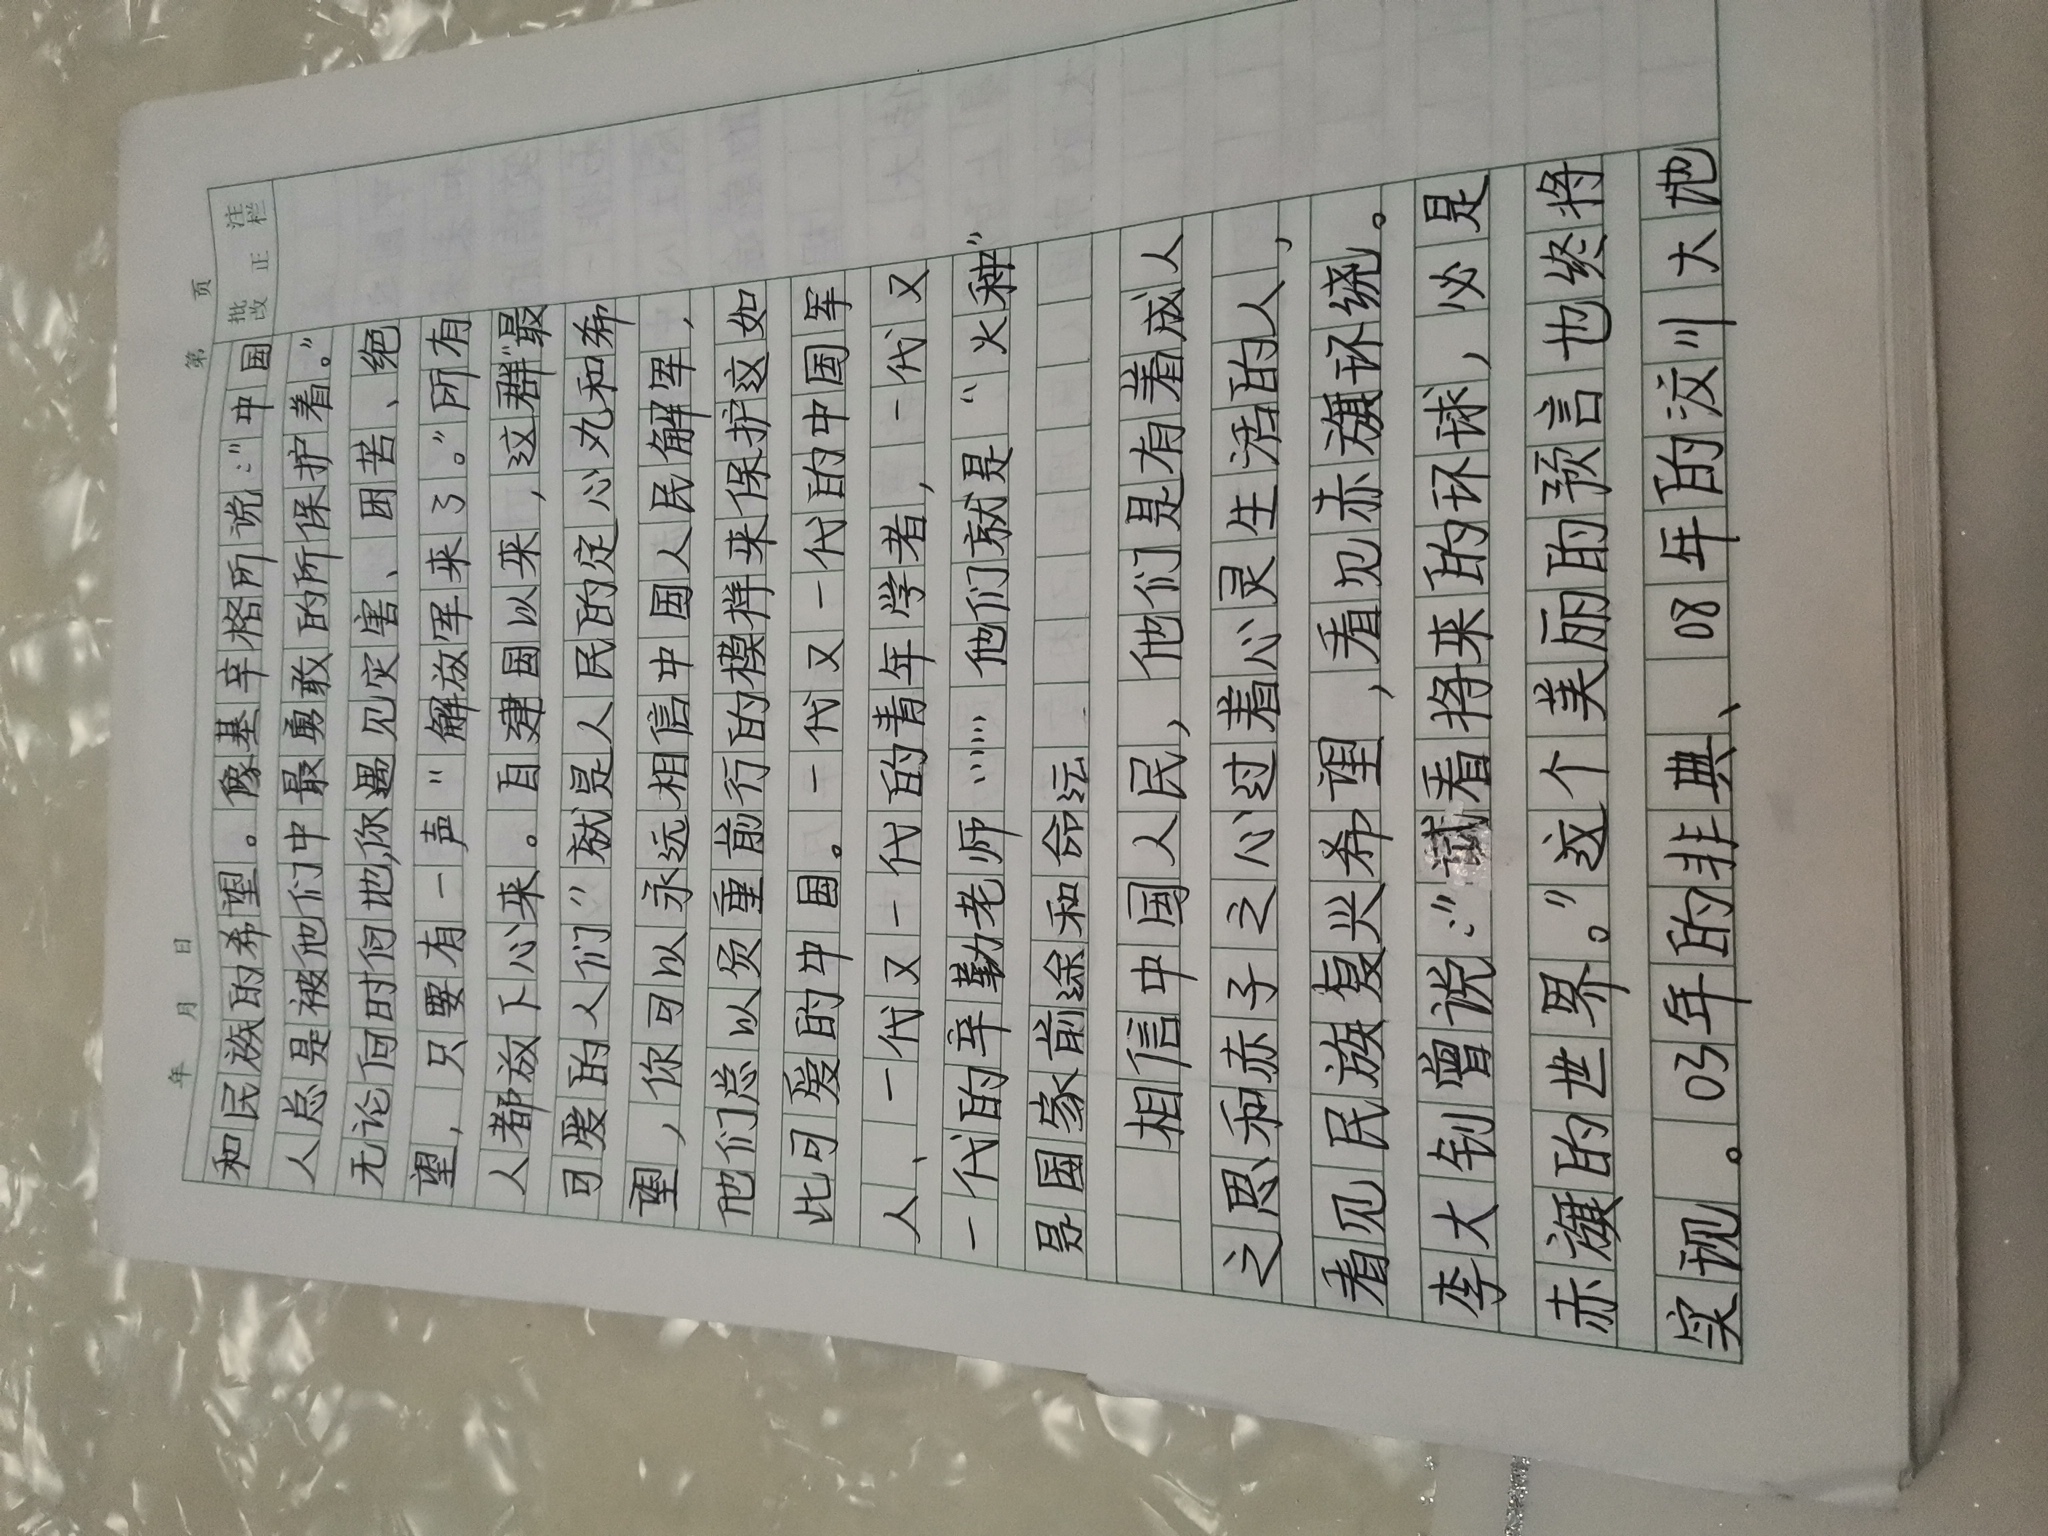 年 月 日 第 页
批改 正 注栏
和民族的希望。像基辛格所说:“中国
人总是被他们中最勇敢的所保护着。”
无论何时何地,你遇见灾害、困苦、绝
望,只要有一声“解放军来了。”所有
人都放下心来。自建国以来,这群“最
可爱的人们”就是人民的定心丸和希
望,你可以永远相信中国人民解军,
他们总以负重前行的模样来保护这如
此可爱的中国。一代又一代的中国军
人、一代又一代的青年学者,一代又
一代的辛勤老师……他们就是“火种”
是国家前途和命运
相信中国人民,他们是有着成人
之思和赤子之心过着心灵生活的人,
看见民族复兴希望,看见赤旗环绕。
李大钊曾说:“试看将来的环球,必是
赤旗的世界。”这个美丽的预言也终将
实现。03年的非典、08年的汶川大地